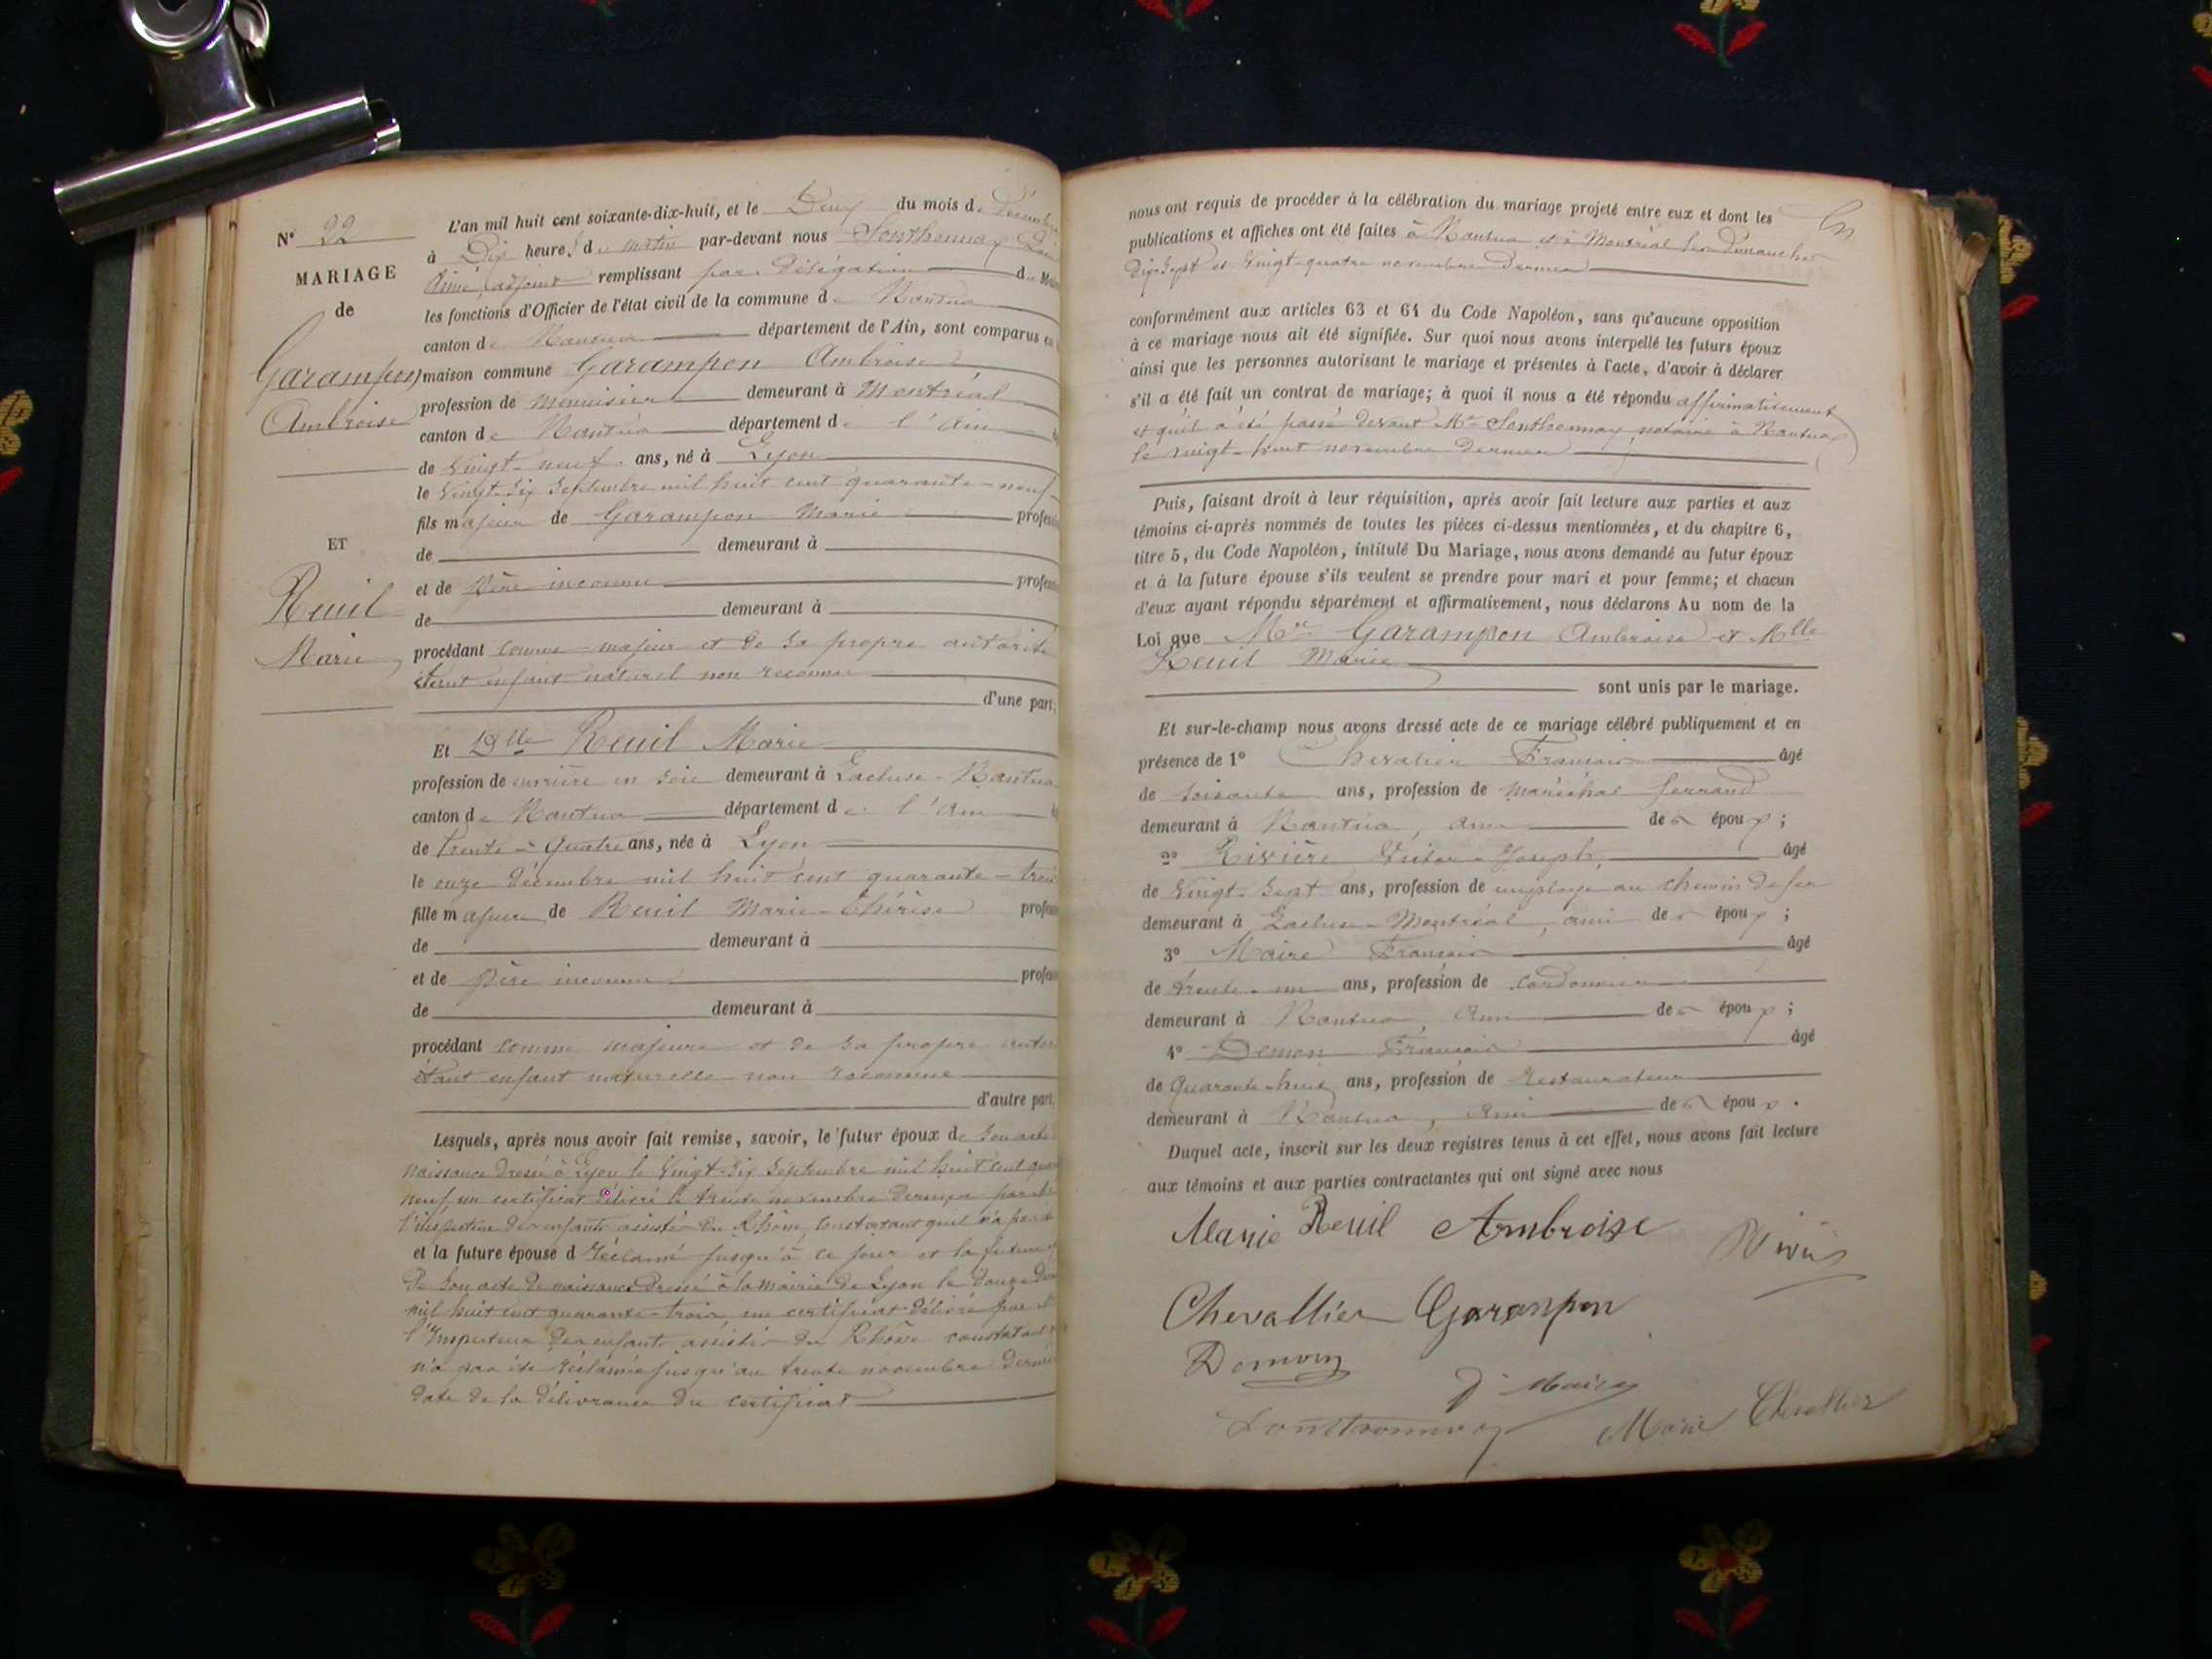 N° 22
MARIAGE
de
Garampon
Ambroise
ET
Reuil
Marie
L'an mil huit cent soixante-dix-huit, et le Deux du mois de Décembre
à Dix heures du matin par-devant nous Sonthonnax
Aimé, adjoint remplissant par délégation du
les fonctions d'Officier de l'état civil de la commune de Nantua
canton de Nantua département de l'Ain, sont comparus en
maison commune Garampon Ambroise
profession de menuisier demeurant à Montréal
canton de Nantua département de l'Ain
de Vingt-neuf ans, né à Lyon
le Vingt-six Septembre mil huit cent quarante-neuf
fils majeur de Garampon Marie
de demeurant à
et de Père inconnu
de demeurant à
procédant comme majeur et de sa propre autorité
étant enfant naturel non reconnu
d'une part;
Et Dlle Reuil Marie
profession de ouvrière en soie demeurant à Lacluse-Nantua
canton de Nantua département de l'Ain
de trente-quatre ans, née à Lyon
le onze décembre mil huit cent quarante-trois
fille majeure de Reuil Marie-Thérèse
de demeurant à
et de père inconnu
de demeurant à
procédant comme majeure et de sa propre
étant enfant naturelle non reconnue
d'autre part.
Lesquels, après nous avoir fait remise, savoir, le futur époux de son acte
naissance dressé à Lyon le Vingt-six Septembre mil huit cent
neuf, un certificat délivré le trente novembre dernier par
l'inspecteur des enfants assistés du Rhône, constatant qu'il n'a pas
et la future épouse d réclamé jusqu'à ce jour et la future
de son acte de naissance dressé à la mairie de Lyon le douze
mil huit cent quarante-trois, un certificat délivré par
l'Inspecteur des enfants assistés du Rhône constatant
n'a pas été réclamée jusqu'au trente novembre dernier
date de la délivrance du certificat
nous ont requis de procéder à la célébration du mariage projeté entre eux et dont les
publications et affiches ont été faites à Nantua et à Montréal les Dimanches
Dix-sept et Vingt-quatre novembre dernier
conformément aux articles 63 et 64 du Code Napoléon, sans qu'aucune opposition
à ce mariage nous ait été signifiée. Sur quoi nous avons interpellé les futurs époux
ainsi que les personnes autorisant le mariage et présentes à l'acte, d'avoir à déclarer
s'il a été fait un contrat de mariage; à quoi il nous a été répondu affirmativement
et qu'il a été passé devant Me Sonthonnax, notaire à Nantua
le vingt-huit novembre dernier
Puis, faisant droit à leur réquisition, après avoir fait lecture aux parties et aux
témoins ci-après nommés de toutes les pièces ci-dessus mentionnées, et du chapitre 6,
titre 5, du Code Napoléon, intitulé Du Mariage, nous avons demandé au futur époux
et à la future épouse s'ils veulent se prendre pour mari et pour femme; et chacun
d'eux ayant répondu séparément et affirmativement, nous déclarons Au nom de la
Loi que Mr Garampon Ambroise et Mlle
Reuil Marie
sont unis par le mariage.
Et sur-le-champ nous avons dressé acte de ce mariage célébré publiquement et en
présence de 1° Chevalier Francois âgé
de soixante ans, profession de maréchal ferrand
demeurant à Nantua, ami des époux;
2° Rivière Victor-Joseph, âgé
de Vingt-sept ans, profession de employé au chemin de fer
demeurant à Lacluse-Montréal, ami des époux;
3° Maire Francois âgé
de trente-un ans, profession de cordonnier
demeurant à Nantua, ami des époux;
4° Demon Francois âgé
de Quarante-huit ans, profession de Restaurateur
demeurant à Nantua, ami des époux.
Duquel acte, inscrit sur les deux registres tenus à cet effet, nous avons fait lecture
aux témoins et aux parties contractantes qui ont signé avec nous
Marie Reuil Ambroise
Chevallier Garanpon
Domon
Maire
Sonthonnax Marie Chevallier